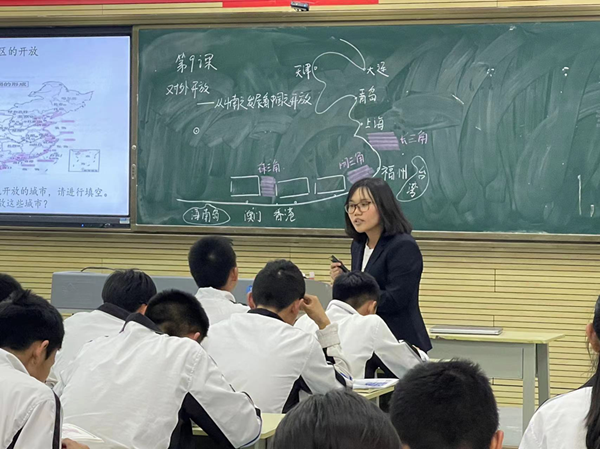 区的开放
开放的城市，请进行填空。
放这些城市？
第9课
对外开放
之发展看中国之开放
天津
大连
青岛
上海
长三角
珠三角
闽三角
福州
台湾
海南岛
澳门 香港